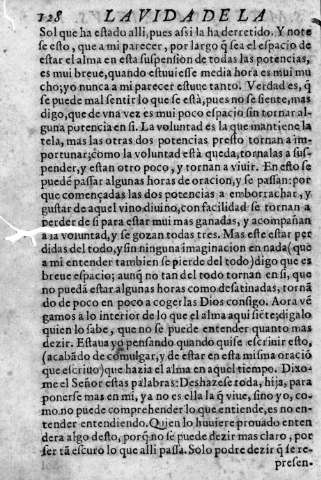 128 LA VIDA DE LA
Sol que ha estado alli, pues assi la ha derretido. Y note
se esto, que a mi parecer, por largo q̃ sea el espacio de
estar el alma en esta suspension de todas las potencias,
es mui breue, quando estuuiesse media hora es mui mu
cho; yo nunca a mi parecer estuue tanto. Verdad es, q̃
se puede mal sentir lo que se està, pues no se siente, mas
digo, que de vna vez es mui poco espacio sin tornar al-
guna potencia en si. La voluntad es la que mantiene la
tela, mas las otras dos potencias presto tornan a im-
portunar; como la voluntad està queda, tornalas a sus-
pender, y estan otro poco, y tornan a viuir. En esto se
puedẽ passar algunas horas de oracion, y se passan: por
que començadas las dos potencias a emborrachar, y
gustar de aquel vino diuino, con facilidad se tornan a
perder de si para estar mui mas ganadas, y acompañan
a la voluntad, y se gozan todas tres. Mas este estar per
didas del todo, y sin ninguna imaginacion en nada (que
a mi entender tambien se pierde del todo) digo que es
breue espacio; aunq̃ no tan del todo tornan en si, que
no puedã estar algunas horas como desatinadas, tornã
do de poco en poco a cogerlas Dios consigo. Aora vẽ
gamos a lo interior de lo que el alma aqui siẽte; digalo
quien lo sabe, que no se puede entender quanto mas
dezir. Estaua yo pensando quando quise escriuir esto,
(acabãdo de comulgar, y de estar en esta misma oraciõ
que escriuo) que hazia el alma en aquel tiempo. Dixo-
me el Señor estas palabras: Deshazese toda, hija, para
ponerse mas en mi, ya no es ella la q̃ viue, sino yo, co-
mo no puede comprehender lo que entiende, es no en-
tender entendiendo. Quien lo huuiere prouado enten
dera algo desto, porq̃ no se puede dezir mas claro, por
ser tã escuro lo que alli passa. Solo podrè dezir q̃ se re-
presen-